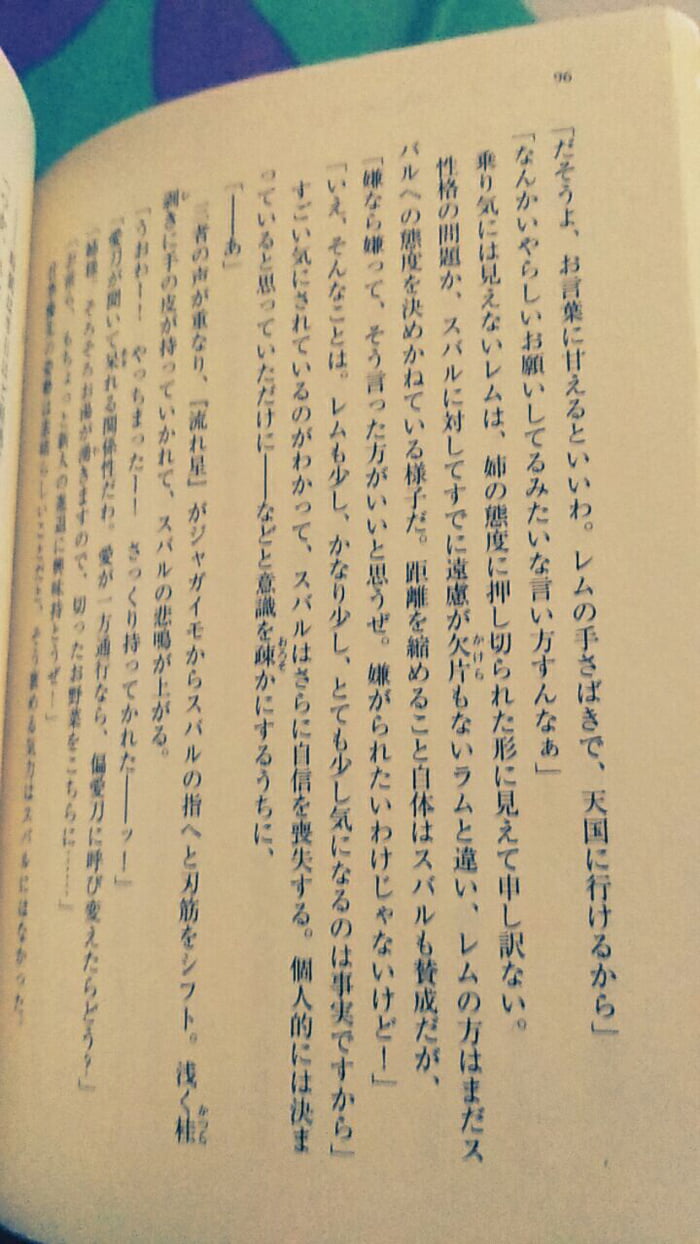 96
「だそうよ、お言葉に甘えるといいわ。レムの手さばきで、天国に行けるから」
「なんかいやらしいお願いしてるみたいな言い方すんなぁ」
乗り気には見えないレムは、姉の態度に押し切られた形に見えて申し訳ない。
性格の問題か、スバルに対してすでに遠慮が欠片もないラムと違い、レムの方はまだス
バルへの態度を決めかねている様子だ。距離を縮めること自体はスバルも賛成だが、
「嫌なら嫌って、そう言った方がいいと思うぜ。嫌がられたいわけじゃないけど！」
「いえ、そんなことは。レムも少し、かなり少し、とても少し気になるのは事実ですから」
すごい気にされているのがわかって、スバルはさらに自信を喪失する。個人的には決ま
っていると思っていただけに――などと意識を疎かにするうちに、
「――あ」
三者の声が重なり、『流れ星』がジャガイモからスバルの指へと刃筋をシフト。浅く桂
剥きに手の皮が持っていかれて、スバルの悲鳴が上がる。
「うおわ――！　やっちまった――！　さっくり持ってかれた――ッ！」
「愛刀が聞いて呆れる関係性だわ。愛が一方通行なら、偏愛刀に呼び変えたらどう？」
「姉様、そろそろお湯が沸きますので、切ったお野菜をこちらに……」
「お前ら、もちょっと新人の進退に興味持とうぜ！」
は素晴らしいことだと、そう褒める気力はスバルにはなかった。